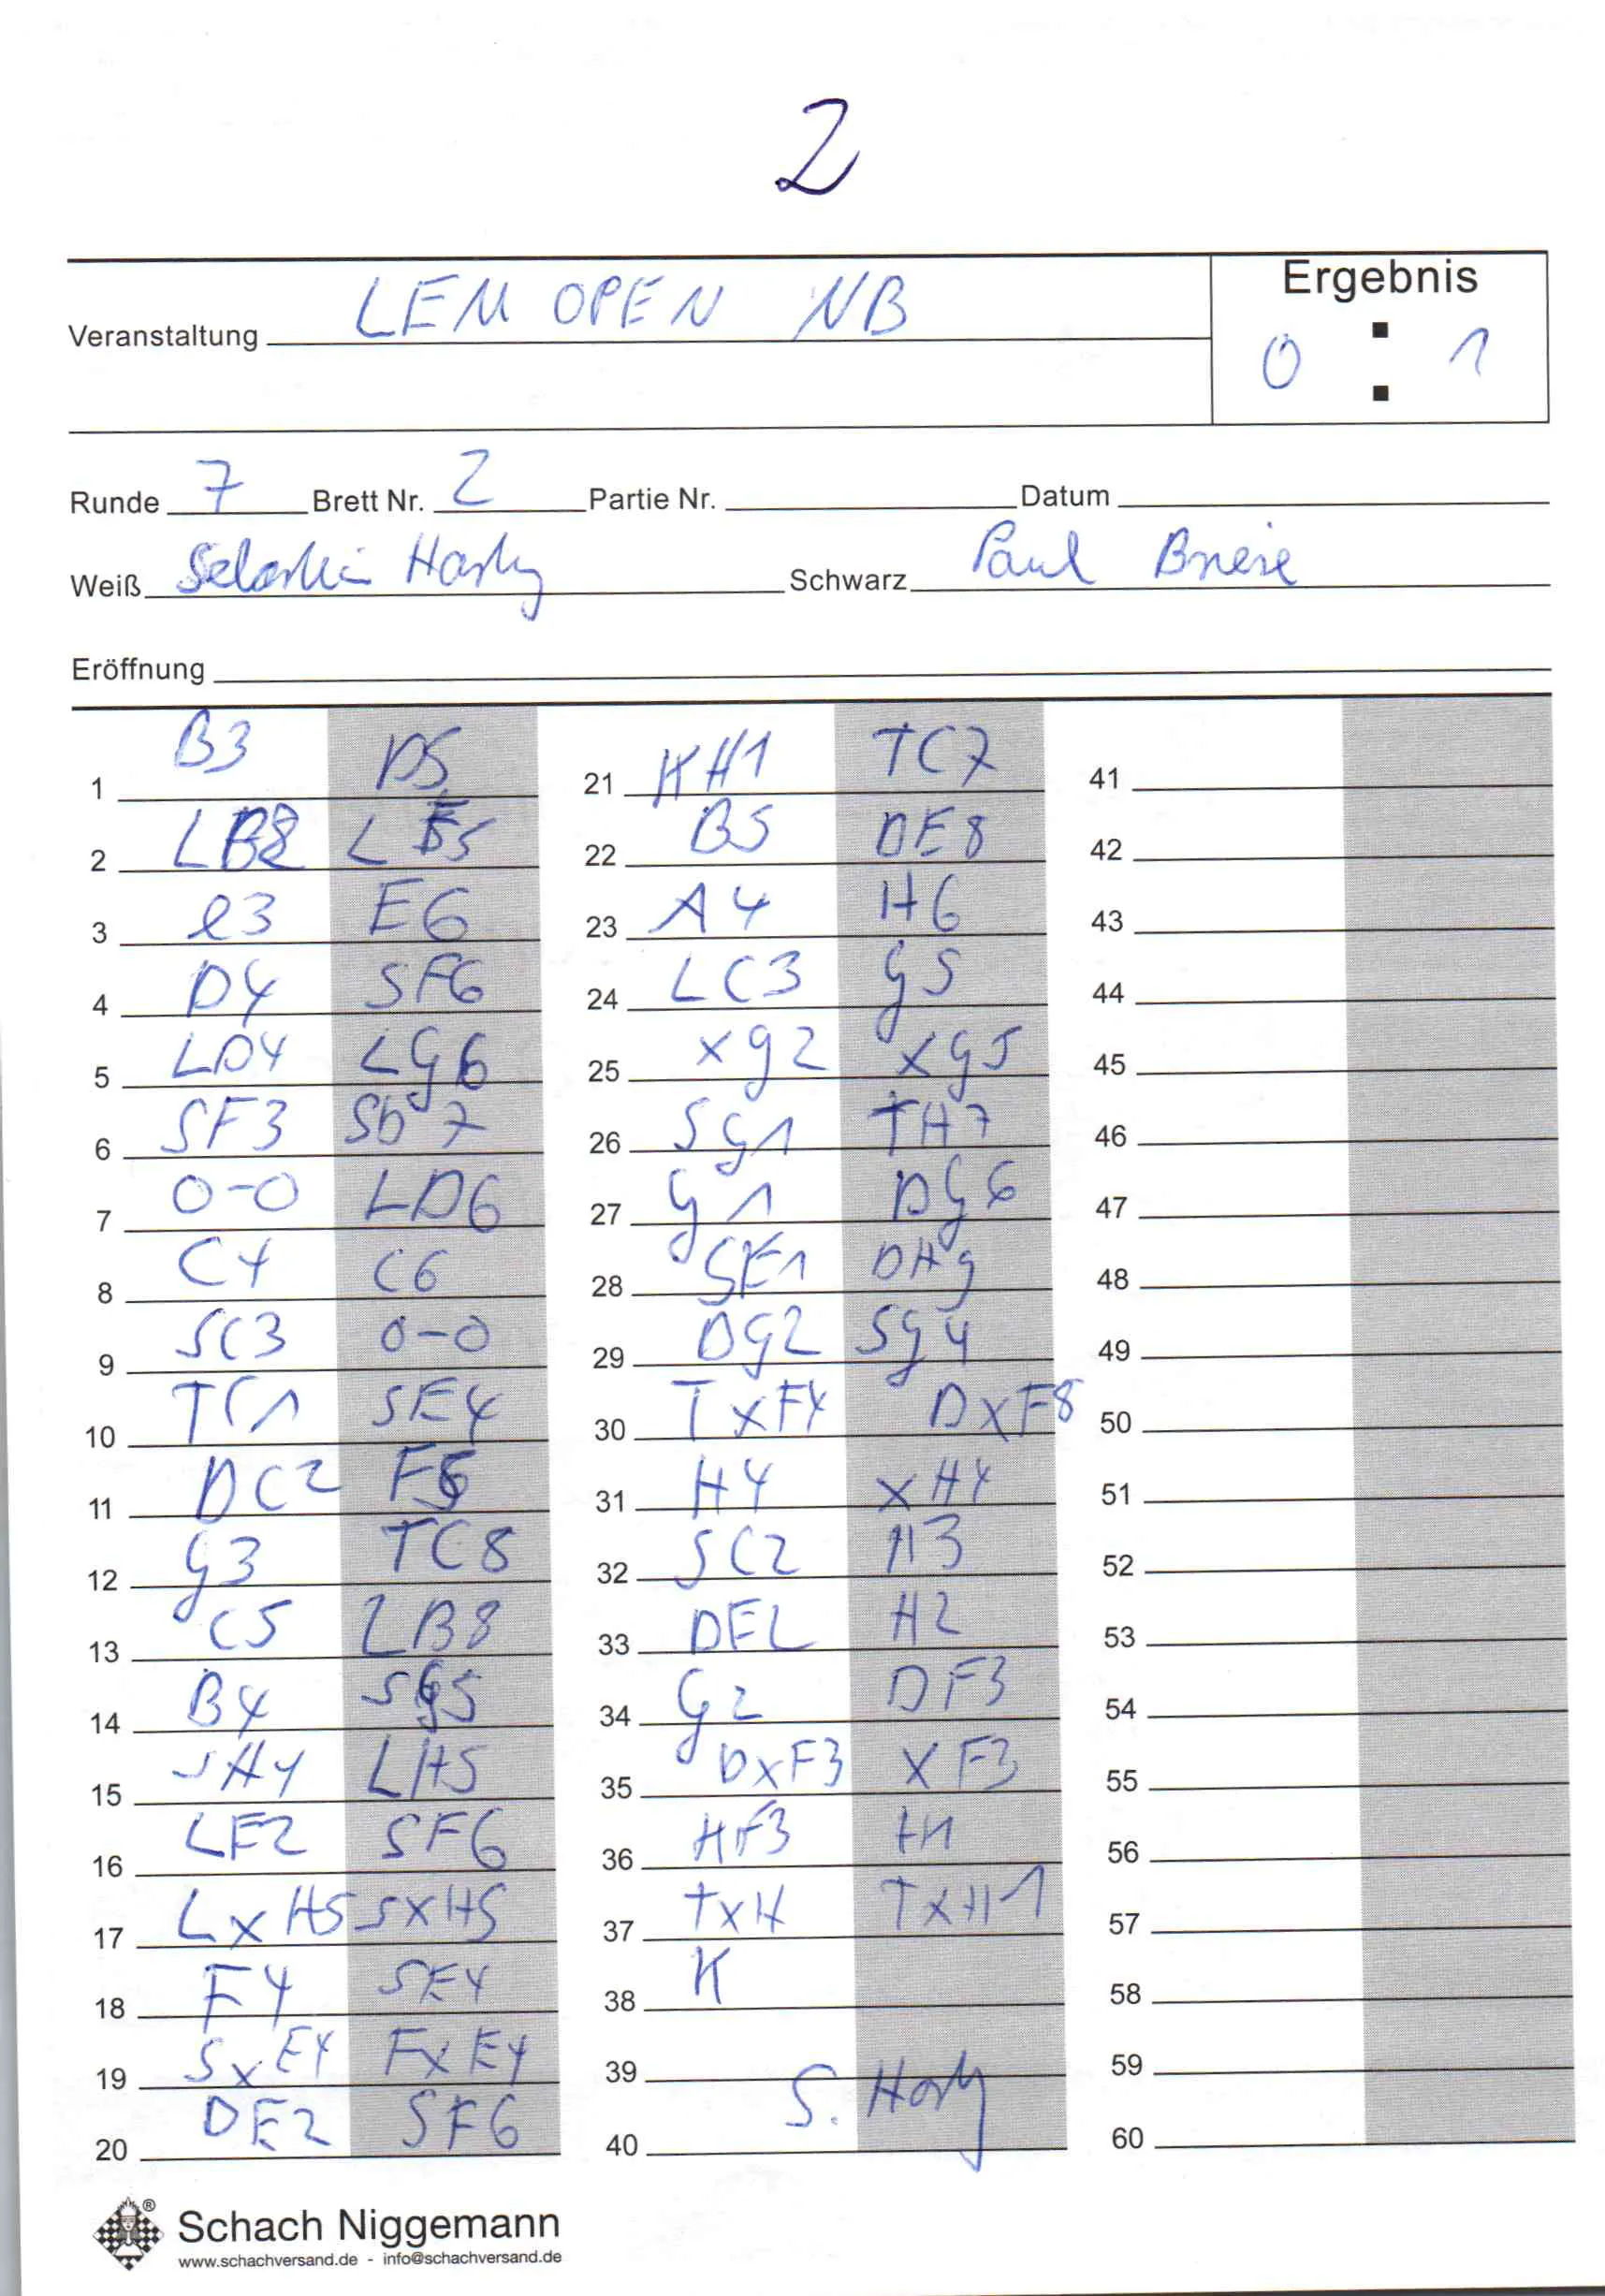 2
Ergebnis
Veranstaltung LEM OPEN NB
0 : 1
Runde 7 Brett Nr. 2 Partie Nr. Datum
Weiß Schwarz Paul
Eröffnung
1 B3 D5
2 LB2 LF5
3 e3 E6
4 D4 SF6
5 LD4 LG6
6 SF3 SD7
7 0-0 LD6
8 C4 C6
9 SC3 0-0
10 TC1 SE4
11 DC2 F5
12 G3 TC8
13 C5 LB8
14 B4 SG5
15 SH4 LH5
16 LE2 SF6
17 LxH5 SxH5
18 F4 SE4
19 SxE4 FxE4
20 DE2 SF6
21 KH1 TC7
22 B5 DE8
23 A4 H6
24 LC3 G5
25 xg2 xg5
26 SG1 TH7
27 G1 DG6
28 SE1 DH
29 DG2 SG4
30 TxF4 DxF8
31 H4 xH4
32 SC2 H3
33 DE2 H2
34 G2 DF3
35 DxF3 xF3
36 HF3 H1
37 TxH TxH1
38 K
39
40
S.
41
42
43
44
45
46
47
48
49
50
51
52
53
54
55
56
57
58
59
60
®
Schach Niggemann
www.schachversand.de - info@schachversand.de